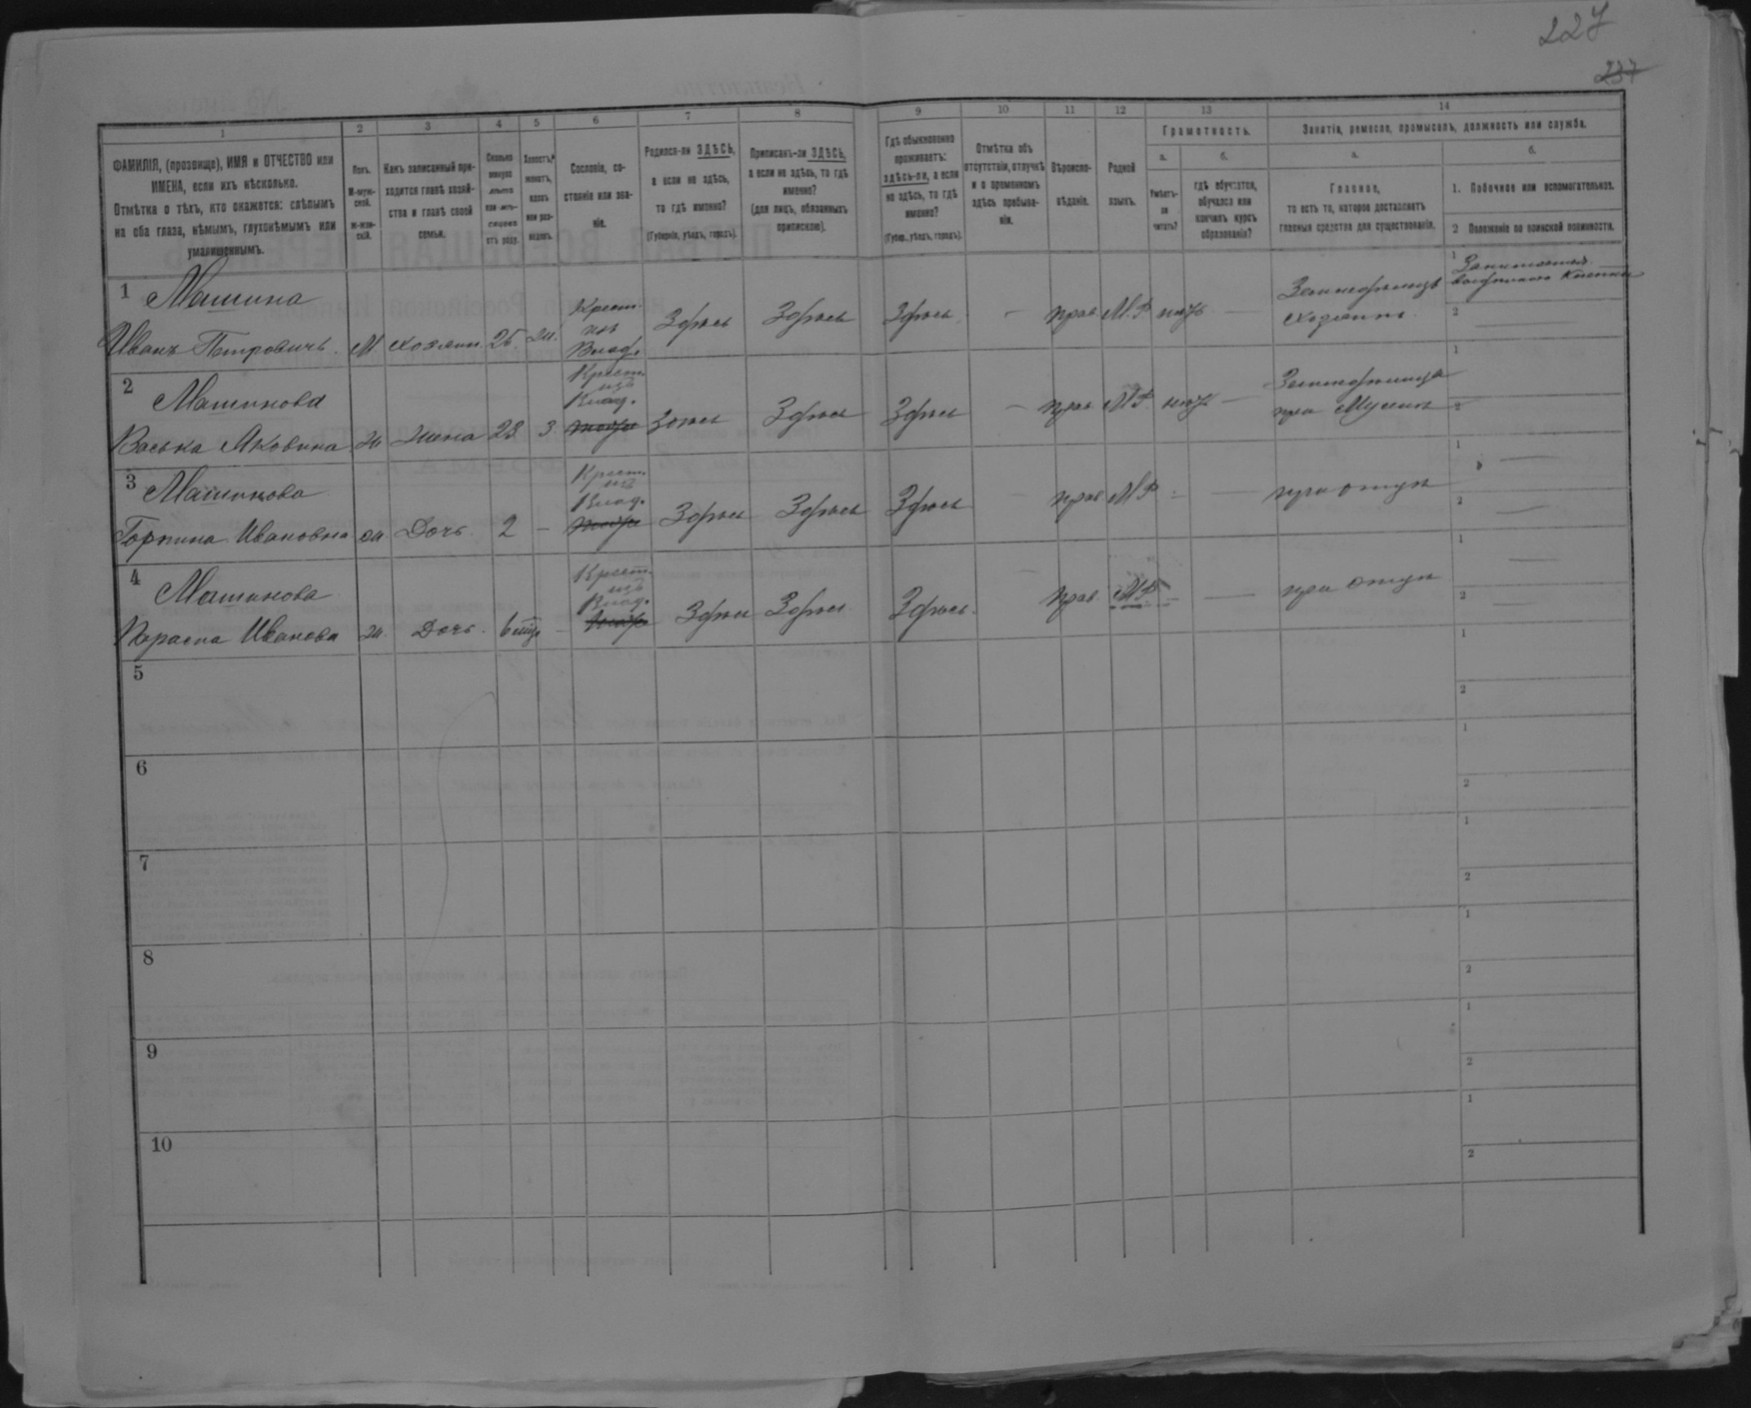 227
237
1 2 3 4 5 6 7 8 9 10 11 12 13 14
ФАМИЛІЯ, (прозвище), ИМЯ и ОТЧЕСТВО или
ИМЕНА, если ихъ нѣсколько.
Отмѣтка о тѣхъ, кто окажется: слѣпымъ
на оба глаза, нѣмымъ, глухонѣмымъ или
умалишеннымъ.
Полъ.
М-муж-
ской.
Ж-жен-
скій.
Какъ записанный при-
ходится главѣ хозяй-
ства и главѣ своей
семьи.
Сколько
минуло
лѣтъ
или мѣ-
сяцевъ
отъ роду.
Холостъ,
женатъ,
вдовъ
или раз-
веденъ.
Сословіе, со-
стояніе или зва-
ніе.
Родился-ли ЗДѢСЬ,
а если не здѣсь,
то гдѣ именно?
(Губернія, уѣздъ, городъ).
Приписанъ-ли ЗДѢСЬ,
а если не здѣсь, то гдѣ
именно?
(для лицъ, обязанныхъ
припискою).
Гдѣ обыкновенно
проживаетъ:
здѣсь-ли, а если
не здѣсь, то гдѣ
именно?
(Губер., уѣздъ, городъ).
Отмѣтка объ
отсутствіи, отлучкѣ
и о временномъ
здѣсь пребыва-
ніи.
Вѣроиспо-
вѣданіе.
Родной
языкъ.
Грамотность.
а.
Умѣетъ-
ли
читать?
б.
гдѣ обучается,
обучался или
кончилъ курсъ
образованія?
Занятіе, ремесло, промыселъ, должность или служба.
а.
Главное,
то есть то, которое доставляетъ
главныя средства для существованія.
б.
1. Побочное или вспомогательное.
2 Положеніе по воинской повинности.
1 Машина
Иванъ Петровичъ. М хозяин 25. Крест. Влад. Здѣсь Здѣсь Здѣсь — прав М.Р нѣтъ — Земледѣлецъ
хозяинъ
1
2
2 Машинова
Васька Яковина ж жена 23 З Крест. изъ Влад. Здѣсь Здѣсь Здѣсь — прав М.Р нѣтъ — Земледѣлица
при Мужѣ
1
2
3 Машинова
Горпина Ивановна ж Дочь 2 — Крест. изъ Влад. Здѣсь Здѣсь Здѣсь прав М.Р — при отцѣ
1
2
4 Машинова
Параска Иванова ж. Дочь. 6 Крест. изъ Влад. Здѣсь Здѣсь Здѣсь. прав. М.Р — при отцѣ
1
2
5
1
2
6
1
2
7
1
2
8
1
2
9
1
2
10
1
2